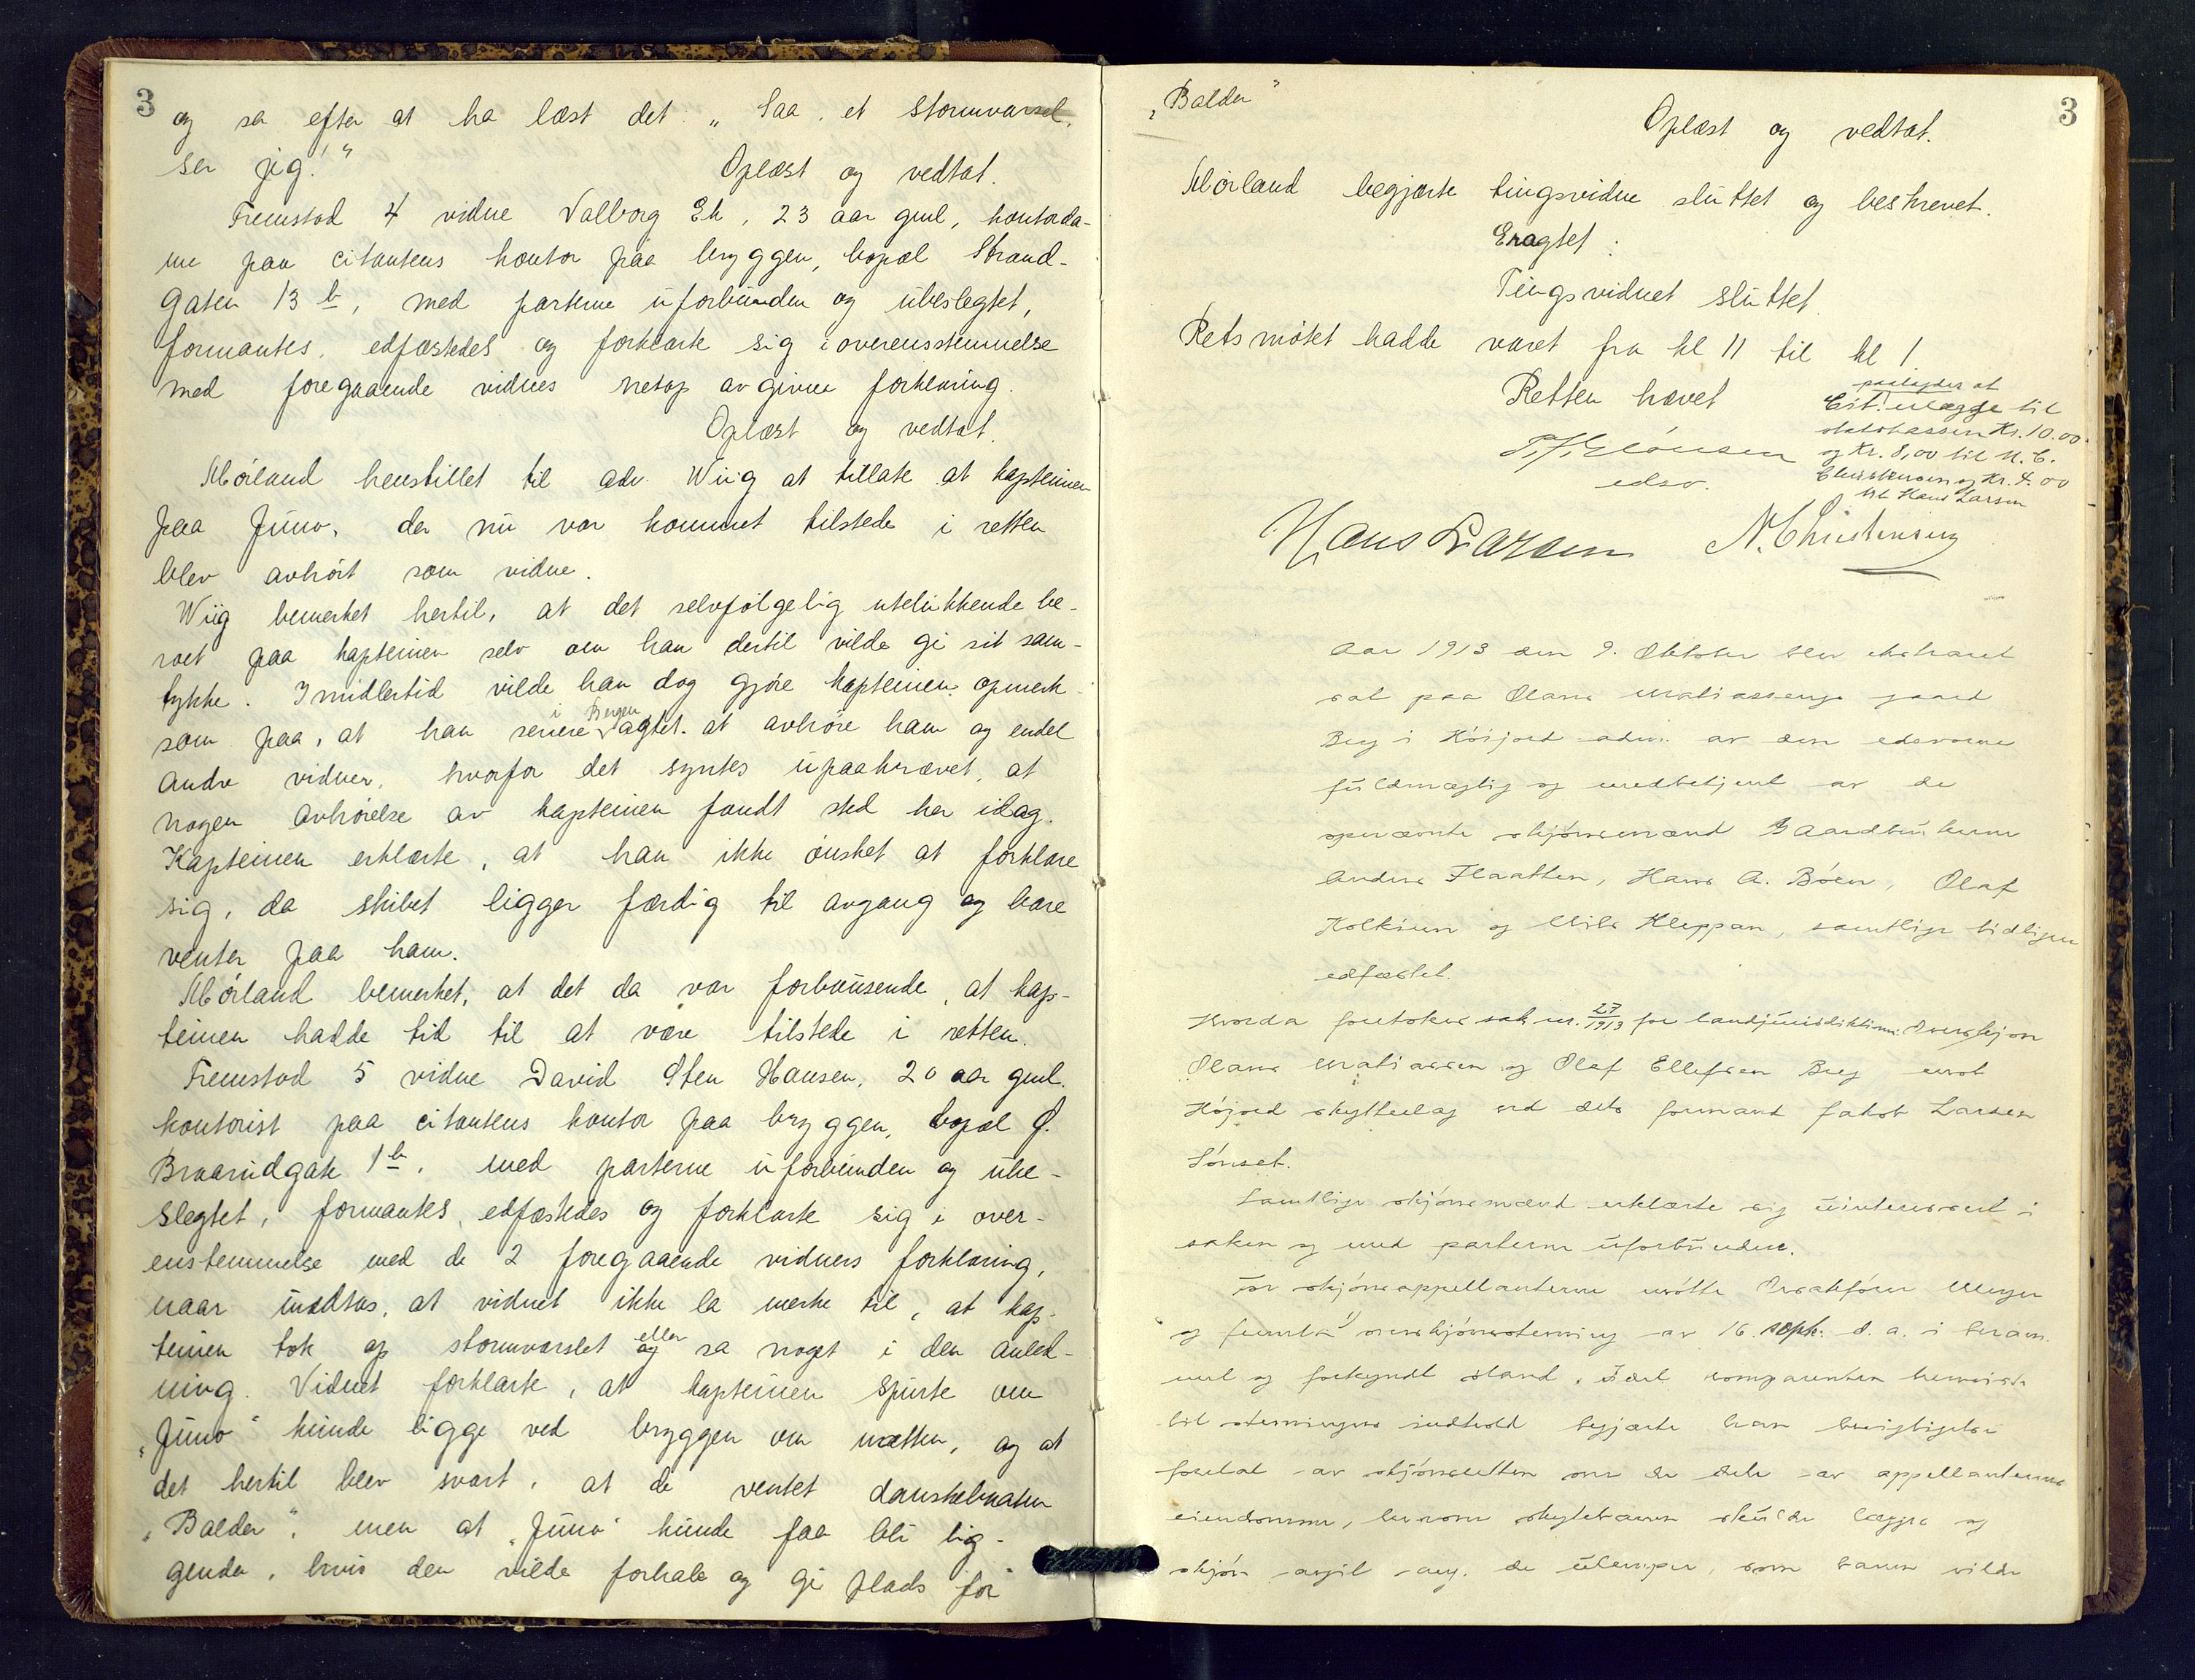 3
og sa efter at ha læst det. „Saa, et stormvarsel,
ser jeg!"
Oplæst og vedtat.
Fremstod 4 vidne Valborg Ek, 23 aar gml, kontorda-
me paa citantens kontor paa bryggen, bopæl Strand-
gaten 13 b, med parterne uforbunden og ubeslegtet,
formantes, edfæstedes og forklarte sig i overensstemmelse
med foregaaende vidnes netop avgivne forklaring.
Oplæst og vedtat.
Mørland henstillet til adv. Wiig at tillate at kapteinen
paa Juno, der nu var kommet tilstede i retten
blev avhørt som vidne.
Wiig bemerket hertil, at det selvfølgelig utelukkende be-
roet paa kapteinen selv om han dertil vilde gi sit sam-
tykke. Imidlertid vilde han dog gjøre kapteinen opmerk-
som paa, at han senere i Bergen agtet at avhøre ham og endel
andre vidner, hvorfor det syntes upaakrævet, at
nogen avhørelse av kapteinen fandt sted her idag.
Kapteinen erklærte, at han ikke ønsket at forklare
sig, da skibet ligger færdig til avgang og bare
venter paa ham.
Mørland bemerket, at det da var forbausende, at kap-
teinen hadde tid til at være tilstede i retten.
Fremstod 5 vidne David Sten Hansen, 20 aar gml.
kontorist paa citantens kontor paa bryggen, bopæl Ø.
Braarudgate 1 b, med parterne uforbunden og ube-
slegtet, formantes, edfæstedes og forklarte sig i over-
enstemmelse med de 2 foregaaende vidners forklaring,
naar undtas, at vidnet ikke la merke til, at kap-
teinen tok op stormvarslet og eller sa noget i den anled-
ning. Vidnet forklarte, at kapteinen spurte om
„Juno" kunde ligge ved bryggen om natten, og at
det hertil blev svart, at de ventet danskebaaten
„Balder", men at „Juno" kunde faa bli lig-
gende, hvis den vilde forhale og gi plads for
„Balder"
3
Oplæst og vedtat.
Mørland begjærte tingsvidne sluttet og beskrevet.
Eragtet:
Tingsvidnet sluttet.
Retsmøtet hadde varet fra kl 11 til kl 1.
Retten hævet
paalagdes at
Cit. ilægge til
statskassen Kr. 10.00
og Kr. 8,00 til N. C.
Christensen og Kr. 4.00
til Hans Larsen
edsv.
Hans Larsen N. Christensen
Aar 1913 den 9. Oktober blev ekstraret
sat paa Olaus Matiassens gaard
Berg i Høijord adm. av den edsvorne
fuldmægtig og medbetjent av de
opnævnte skjønsmænd Gaardbrukerne
Anders Flaatten, Hans A. Bøen, Olaf
og Nils Kleppan, samtlige tidligere
edfæstet.
Hvorda foretokes sak nr. 27/1913 for landjurisdiktion: Overskjøn
Olaus Matiassen og Olaf Ellefsen Berg mot
Høijord skytterlag ved dets formand Jakob Larsen
Sønset.
Samtlige skjønsmænd erklærte sig uinteressert i
saken og med parterne uforbundne.
For skjønsappellanterne møtte Orsakfører Meyer
og fremla overskjønsstevning av 16. sept. d. a. i beram-
met og forkyndt stand. Idet comparenten henviste
til stevningens indhold begjærte han besigtigelse
foretat av skjønsretten over de dele av appellanternes
eiendomme, hvorom skytebanen skulde lægges og
skjøn avgit ang. de ulemper, som banen vilde